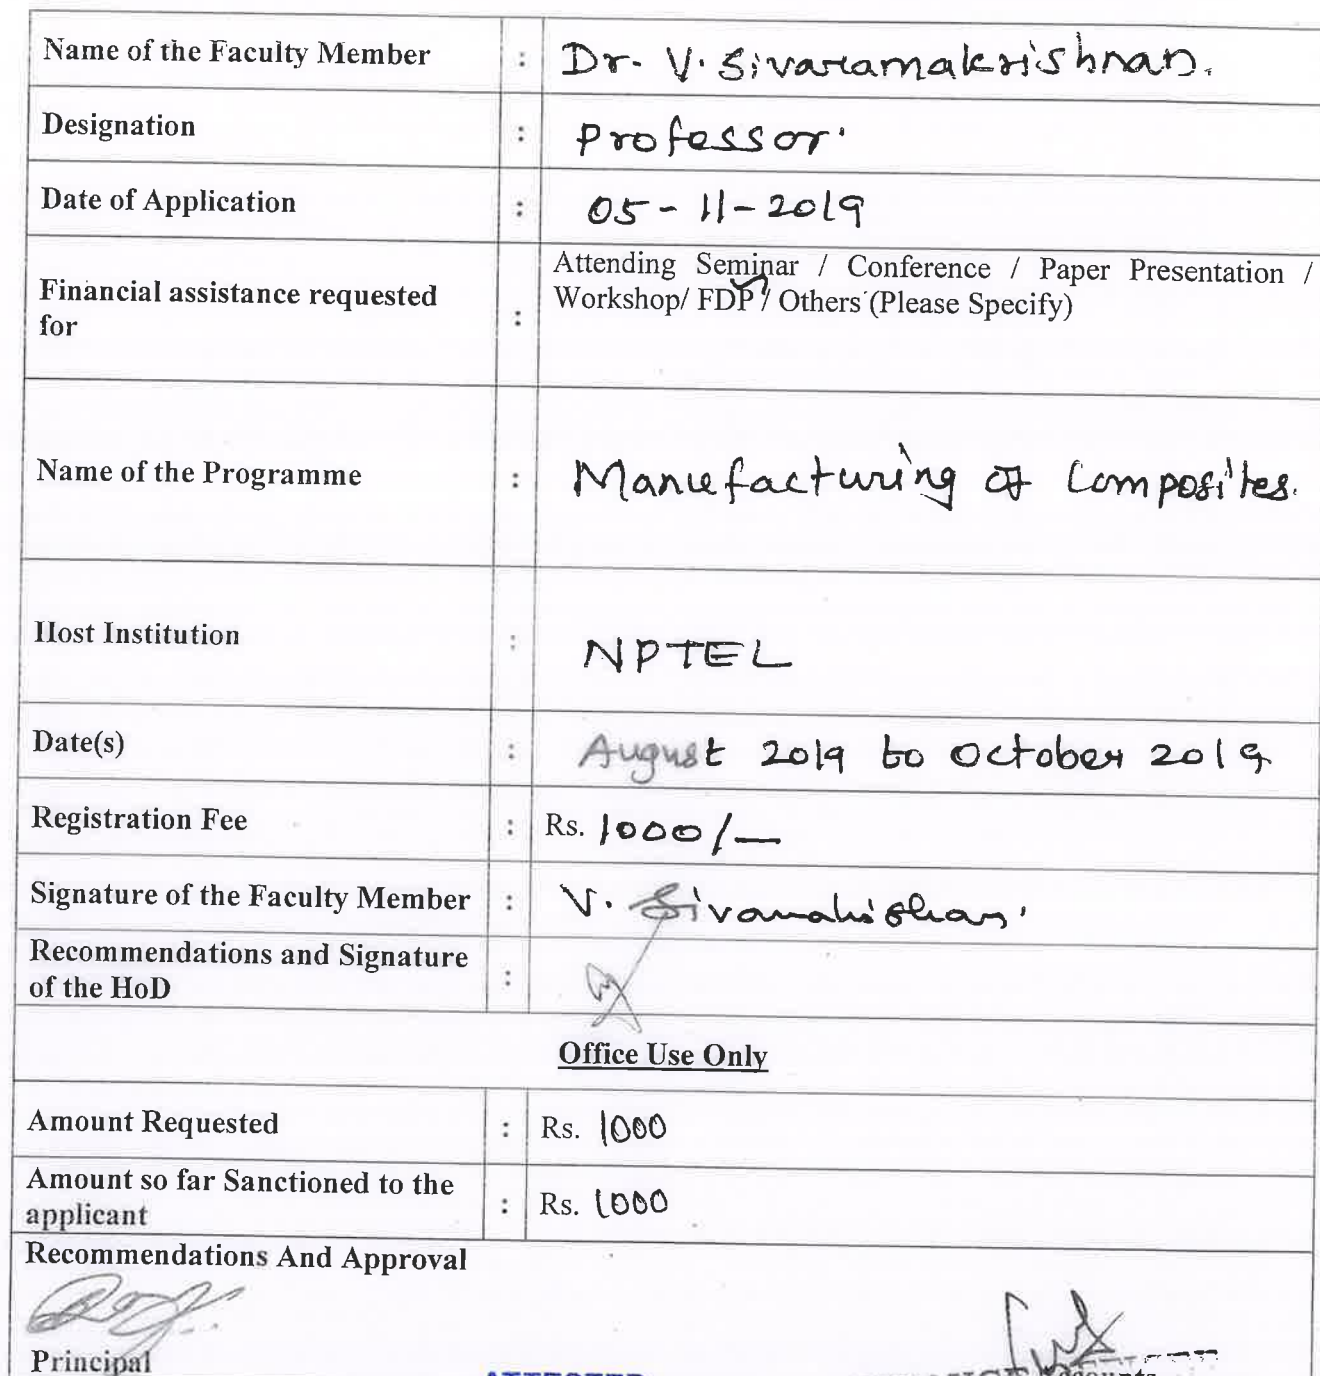 Name of the Faculty Member : Dr. V. Sivaramakrishnan.
Designation : Professor.
Date of Application : 05-11-2019
Financial assistance requested for : Attending Seminar / Conference / Paper Presentation /
Workshop/ FDP / Others (Please Specify)
Name of the Programme : Manufacturing of Composites.
Host Institution : NPTEL
Date(s) : August 2019 to October 2019
Registration Fee : Rs. 1000/-
Signature of the Faculty Member : V. Sivaramakrishnan.
Recommendations and Signature
of the HoD :
Office Use Only
Amount Requested : Rs. 1000
Amount so far Sanctioned to the
applicant : Rs. 1000
Recommendations And Approval
Principal
ATTESTED
Accounts